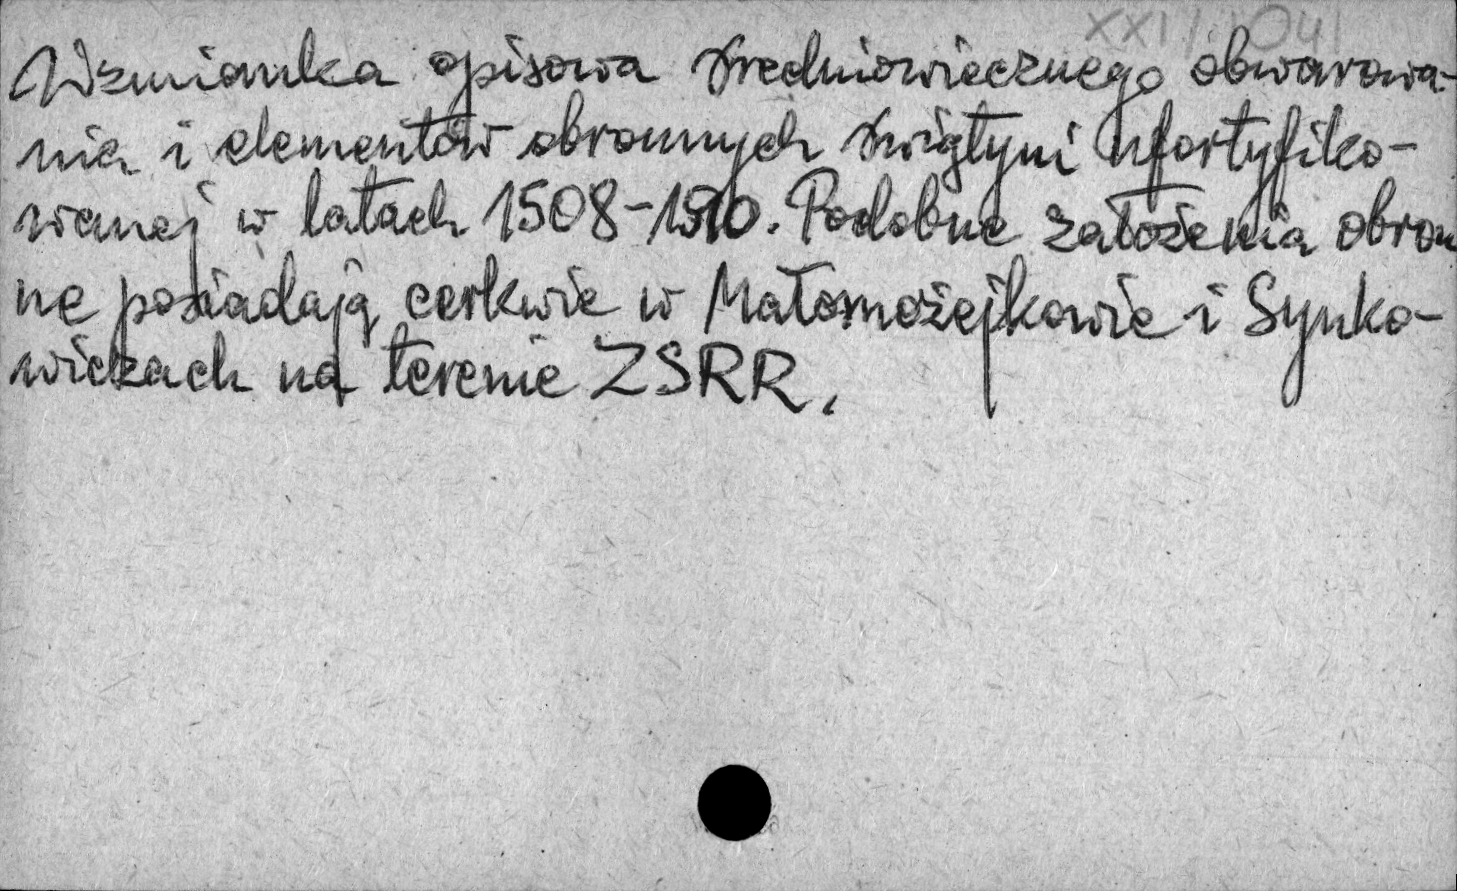 XXI/1041
Wzmianka opisowa średniowiecznego obwarowa-
nia i elementów obronnych świątyni ufortyfiko-
wanej w latach 1508-1510. Podobne założenia obron
ne posiadają cerkwie w Małomożejkowie i Synko-
wiczach na terenie ZSRR.